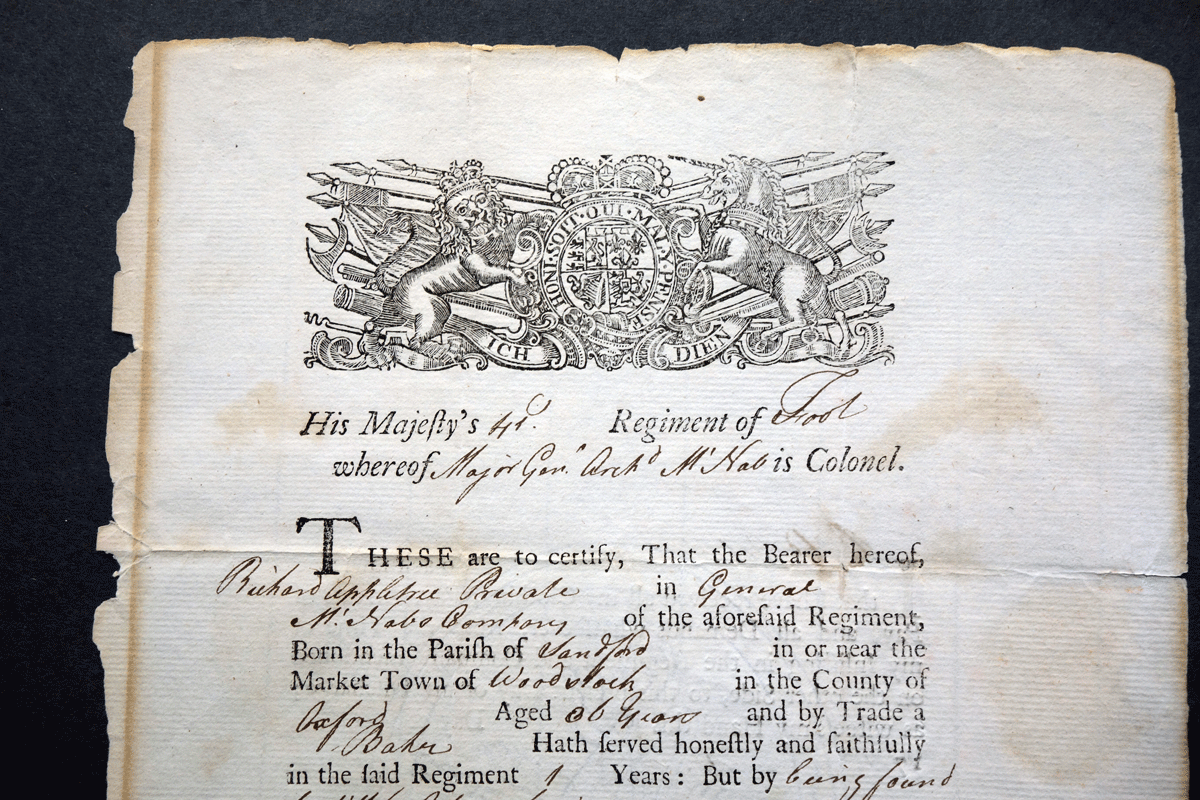 HONI·SOIT·QUI·MAL·Y·PENSE
ICH DIEN
His Majeſty's 41ſt. Regiment of Foot
whereof Major Genˡ Archᵈ MᶜNab is Colonel.
THESE are to certify, That the Bearer hereof,
Richard Appletree Private in General
MᶜNabs Company of the aforeſaid Regiment,
Born in the Pariſh of Sandford in or near the
Market Town of Woodstock in the County of
Oxford Aged 36 Years and by Trade a
Baker Hath ſerved honeſtly and faithfully
in the ſaid Regiment 1 Years: But by being found